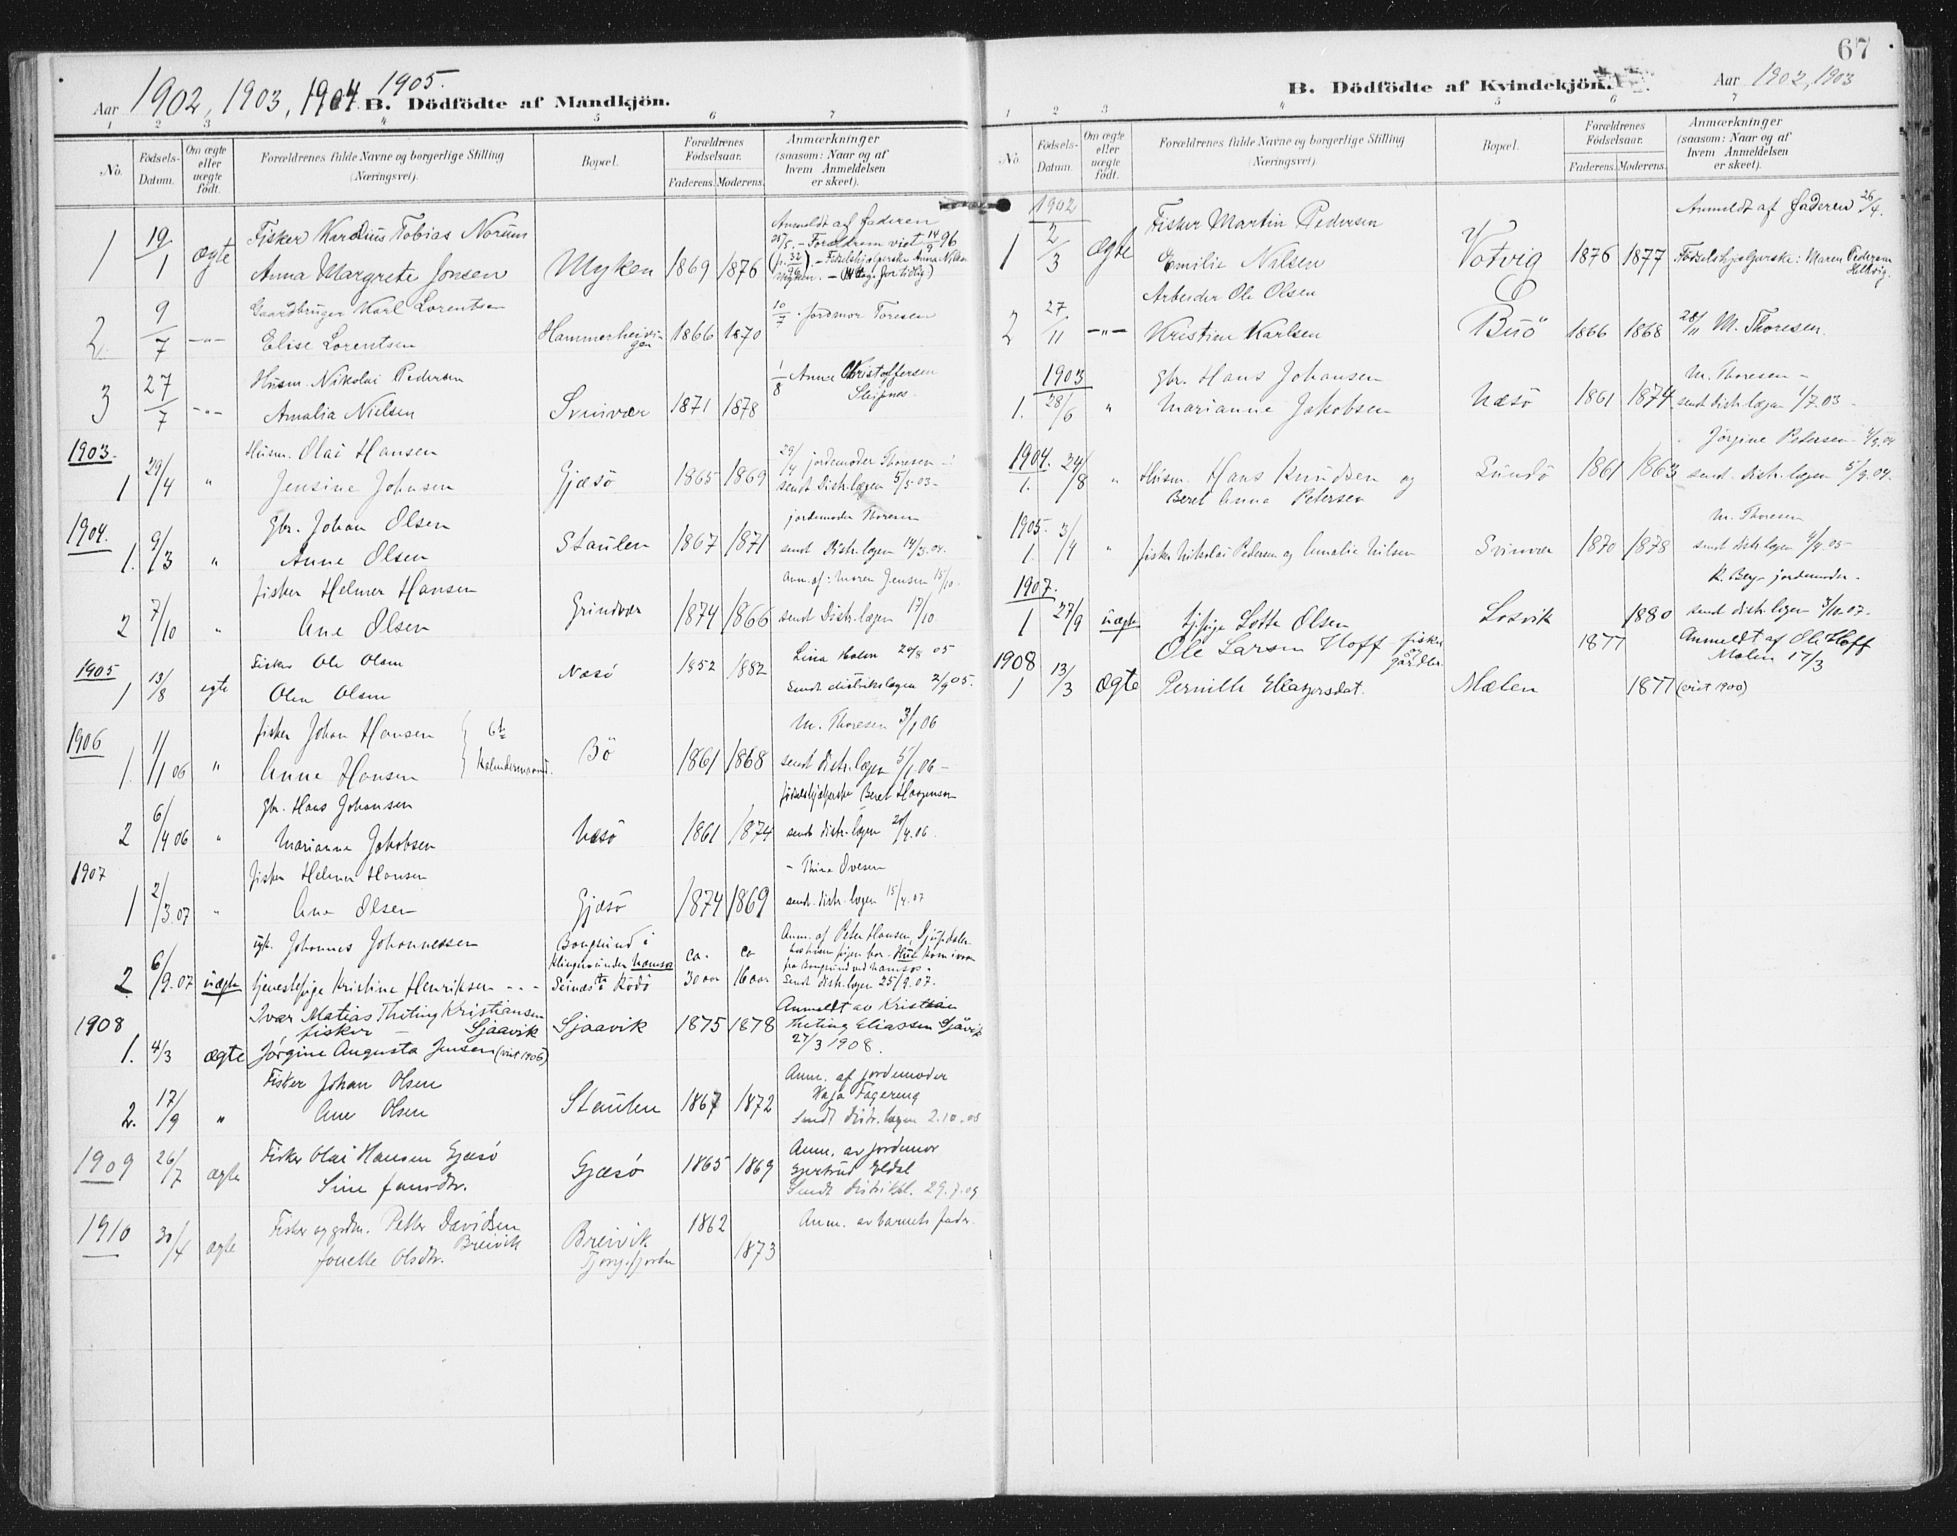 Aar 1902, 1903, 1904. 1905.
B. Dödfödte af Mandkjön.
1 2 3 4 5 6 7
No.
Födsels-Datum.
Om ægte eller uægte födt.
Forældrenes fulde Navne og borgerlige Stilling (Næringsvei).
Bopæl.
Forældrenes Födselsaar.
Faderens. Moderens.
Anmærkninger (saasom: Naar og af hvem Anmeldelsen er skeet).
1 19/1 ægte Fisker Kardius Tobias Norum
Anna Margrete Jonsen Myken 1869 1876
Anmeldt af faderen
2 9/7 -"- Gaardbruger Karl Lorentsen
Elise Lorentsen 1866 1870
10/7. Jordmor Toresen
3 27/7 -"- Husm. Nikolai Pedersen
Amalia Nielsen Svinvær 1871 1878
1/8 Anna Christoffersen
1903.
1 29/4 " Husm. Olai Hansen
Jensine Johnsen Gjæsö 1865 1869
jordemoder Thoresen
sendt Distr.lægen 5/5.03-
1904.
1. 9/3 " Gbr. Johan Olsen
Anne Olsen Staulen 1867 1871
jordemoder Thoresen
sendt Distr.lægen 14/3.04.
2 7/10 " fisker Helmer Hansen
Ane Olsen Grindvær 1874 1866
Anm. af: Maren Jensen 15/10.
sendt Distr.lægen 17/10
1905
1 13/8 egte Fisker Ole Olsen
Olea Olsen Næsö 1852 1882
Lina Holen 20/8 05
Sendt distriktslægen 2/9 05.
1906
1. 1/1 06 " fisker Johan Hansen
Anne Hansen Bö 1861 1868
M. Thoresen 3/1 06
sendt Distr.lægen 5/1.06-
2 6/4 06 " gbr. Hans Johansen
Marianne Jakobsen Næsö 1861 1874
födselshjælperske Beret
sendt distr.lægen 20/4.06.
1907
1 2/3.07 " fisker Helmer Hansen
Ane Olsen Gjæsö 1874 1869
- Thina Ovesen
sendt distr.lægen 15/4.07
2 6/9.07 uægte ugk. Johannes Johannessen
tjenestepige Kristine Henriksen - - - Rödö
ca. 30 aar ca 16 aar
Anm. af Peter Hansen,
Sendt distr.lægen 25/9.07.
1908
1. 4/3 ægte Ivar Matias Theting Kristiansen
fisker - Sjaavik
Jörgine Augusta Jensen (viet 1906) Sjaavik 1875 1878
Anmeldt av Kristian
Theting Eliassen Sjåvik
27/3 1908.
2. 17/9 " Fisker Johan Olsen
Ane Olsen Staulen 1867 1872
Anm. af jordemoder
Kaja Fagereng
Sendt distr.lægen 2.10.08
1909 26/7 ægte Fisker Olai Hansen Gjæsö
Sine Jensdtr. Gjæsö 1865 1869
Anm. av jordemor
Gjertrud Eldal
Sendt distriktsl. 29.7.09
1910 30/4 ægte Fisker og grdm. Petter Davidsen
Breivik
Jonette Olsdtr. Breivik
Tjongsfjorden 1862 1873
Anm. av barnets fader.
67
B. Dödfödte af Kvindekjön.
Aar 1902, 1903
1 2 3 4 5 6 7
No
Födsels-Datum.
Om ægte eller uægte födt.
Forældrenes fulde Navne og borgerlige Stilling (Næringsvei)
Bopæl.
Forældrenes Födselsaar.
Faderens. Moderens.
Anmærkninger (saasom: Naar og af hvem Anmeldelsen er skeet).
1902
1 2/3 Ægte Fisker Martin Pedersen
Emilie Nilsen Votvig 1876 1877
Anmeldt af faderen 26/4.
Födselshjelperske: Maren Pedersen
2 27/11 -"- Arbeider Ole Olsen
Kristine Karlsen Buö 1866 1868
28/11 M. Thoresen.
1903
1. 28/6 " Gbr. Hans Johansen
Marianne Jakobsen Næsö 1861 1874
M. Thoresen -
sendt distr.lægen 1/7.03-
1904.
1. 24/8 " Husm. Hans Knudsen og
Beret Anna Petersen Sundö 1861 1863
Jörgine Petersen
sendt. distr.lægen 5/9.04.
1905.
1. 3/4 " fisker Nikolai Pedersen og Amalie Nilsen Svinvær 1870 1878
M. Thoresen
sendt distr.lægen 4/4 05-
1907.
1 27/9 uægte Lotte Olsen Losvik 1880
K. Berg jordemoder.
sendt distr.lægen 3/10.07.
1908
1 13/3 Ægte Ole Larsen Hoff fisker og gårdbr
Pernille Eliasersdat. Mælen 1877 1877
Anmeldt af Ole Hoff
Mælen 17/3
(viet 1900)